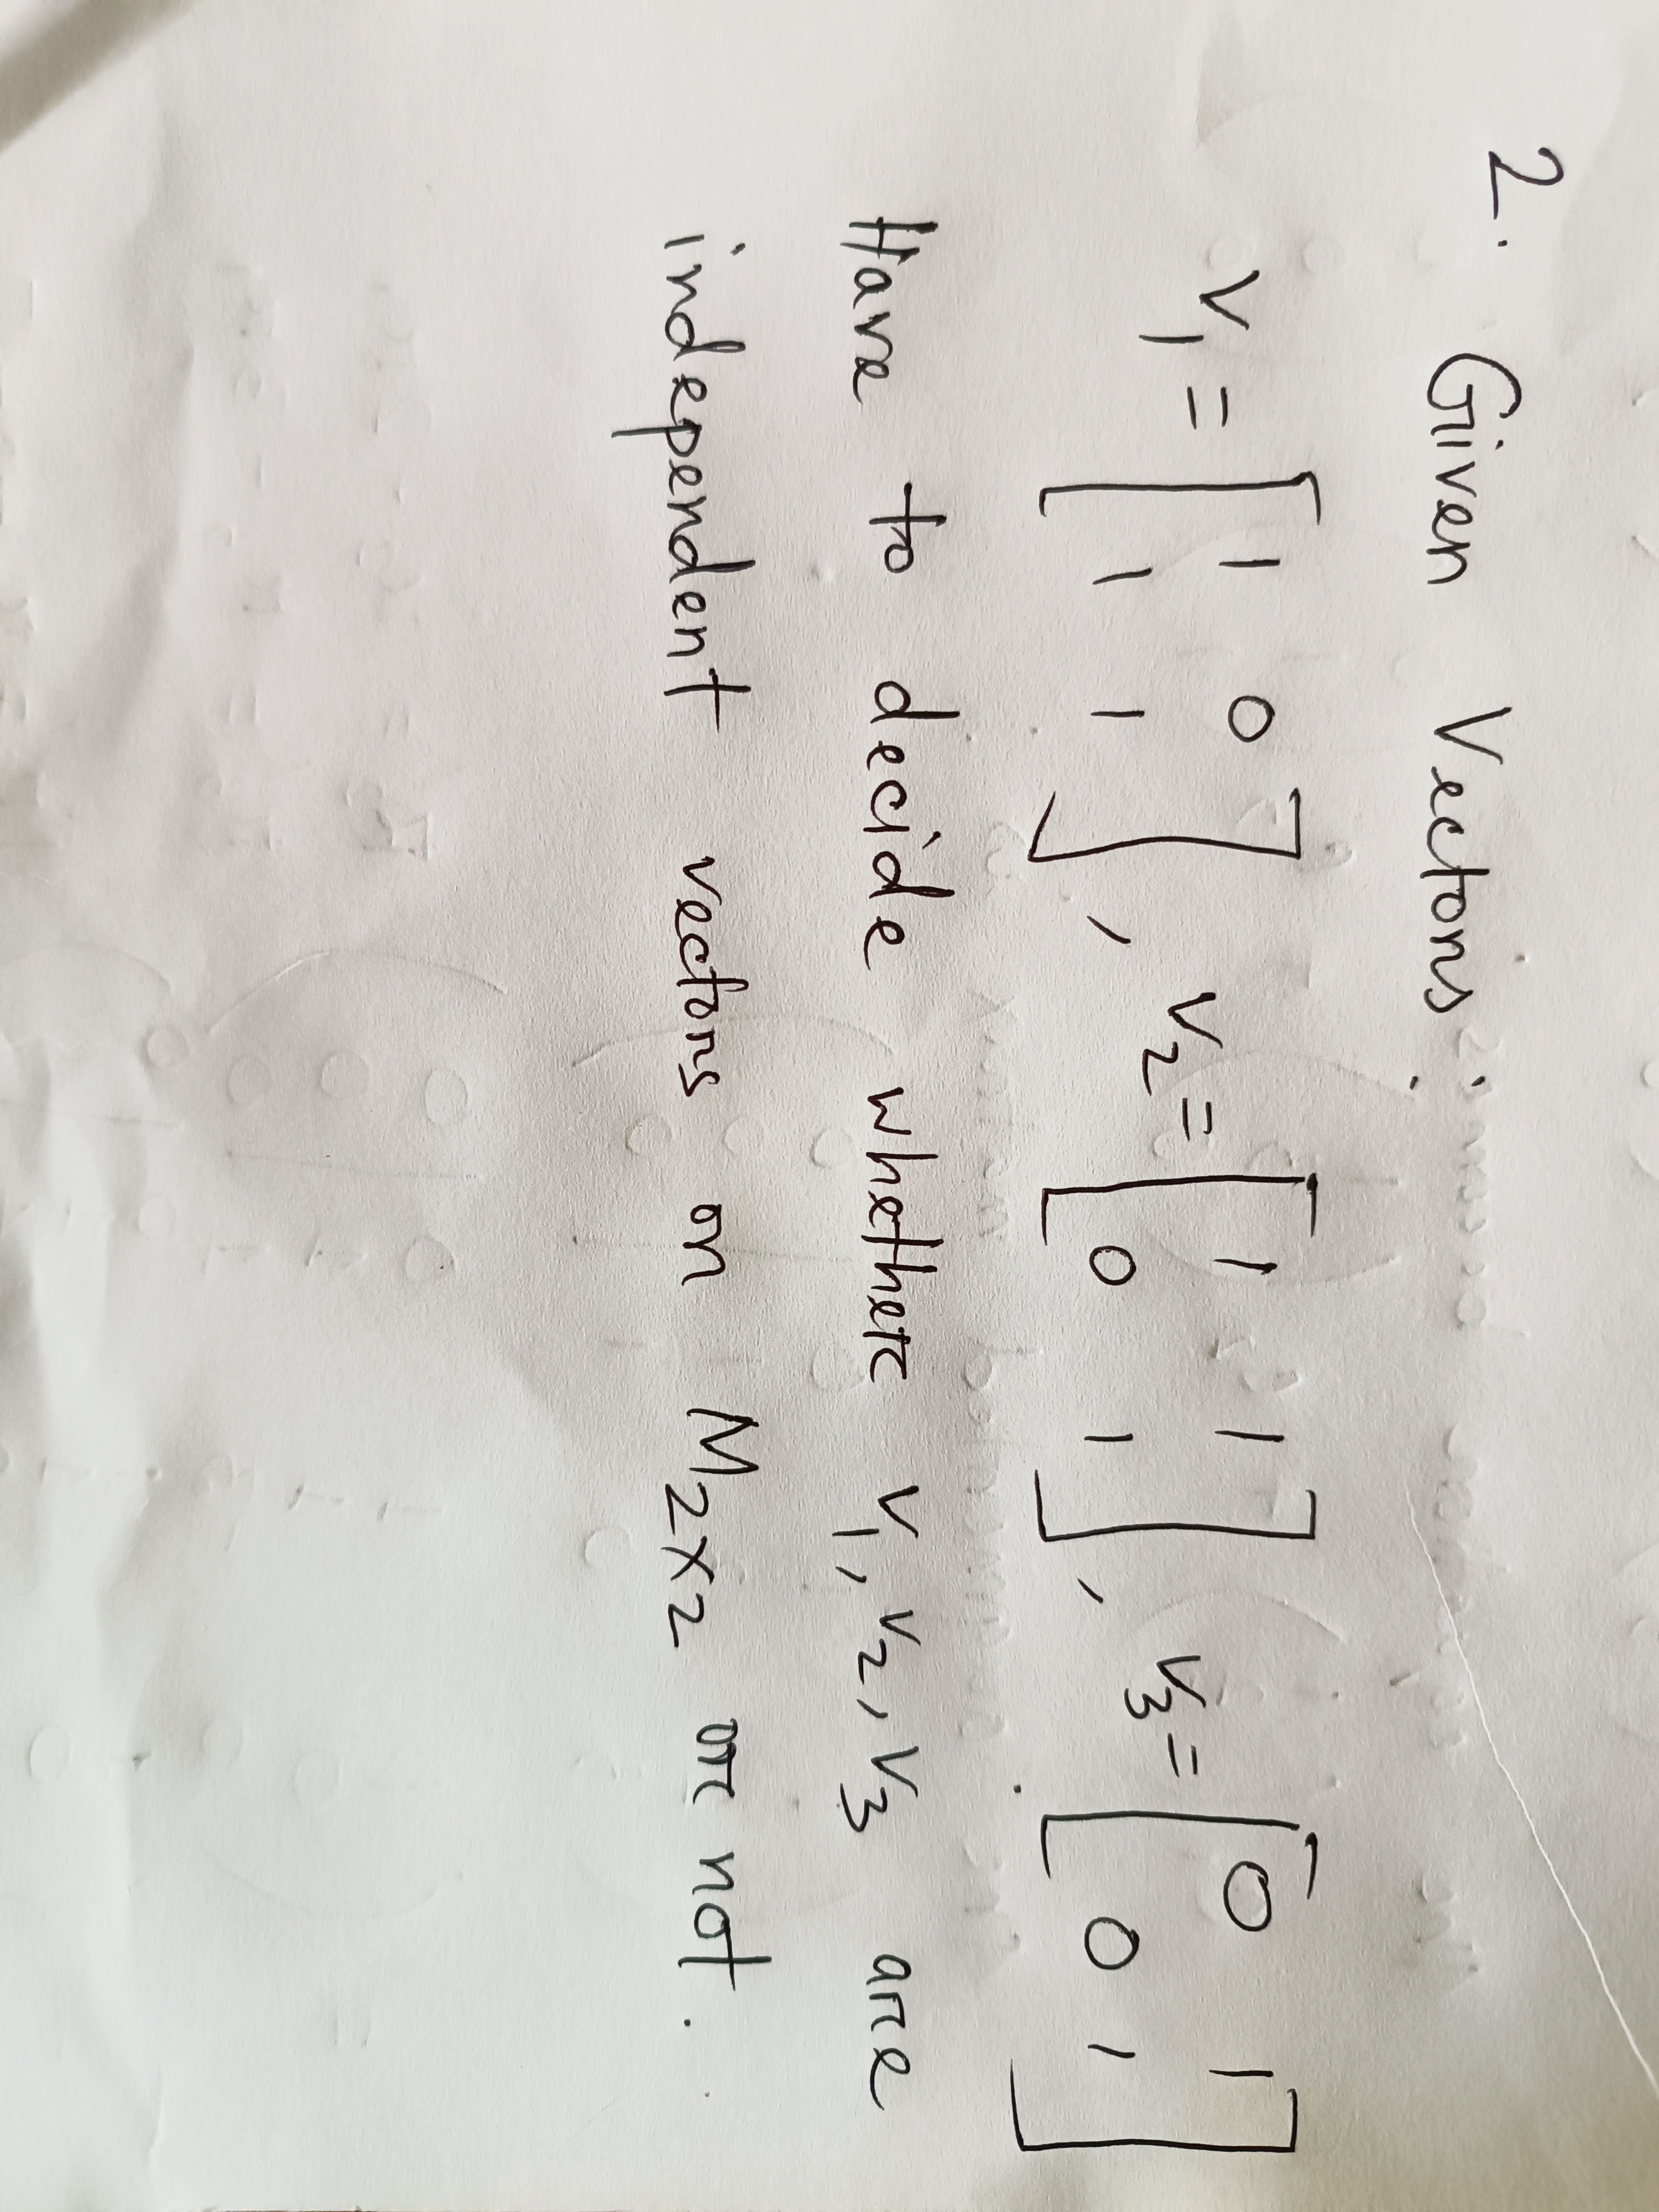 2. Given Vectors:
V₁ = [1 0
1 1], V₂ = [1 1
0 1], V₃ = [0 1
0 1]
Have to decide whether V₁, V₂, V₃ are
independent vectors on M₂ₓ₂ or not.